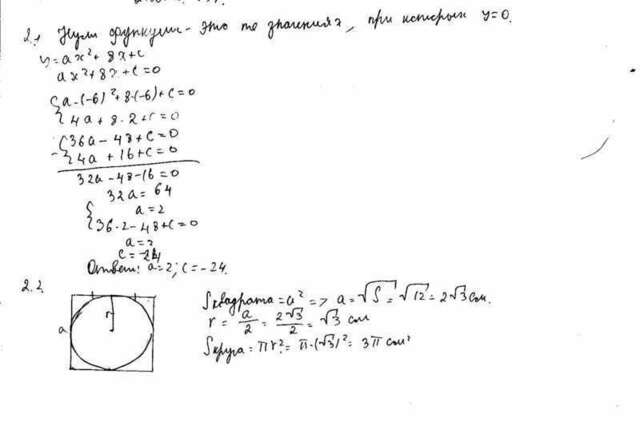 2.1 Нули функции - это те значения x, при которых y=0.
y=ax²+8x+c
ax²+8x+c=0
{a·(-6)²+8·(-6)+c=0
{4a+8·2+c=0
-{36a-48+c=0
{4a+16+c=0
32a-48-16=0
32a=64
{a=2
{36·2-48+c=0
a=2
c=-24
Ответ: a=2; c=-24.
2.2.
a
r
Sквадрата=a² => a=√S=√12=2√3 см.
r=a/2=2√3/2=√3 см
Sкруга=πr²=π·(√3)²=3π см²